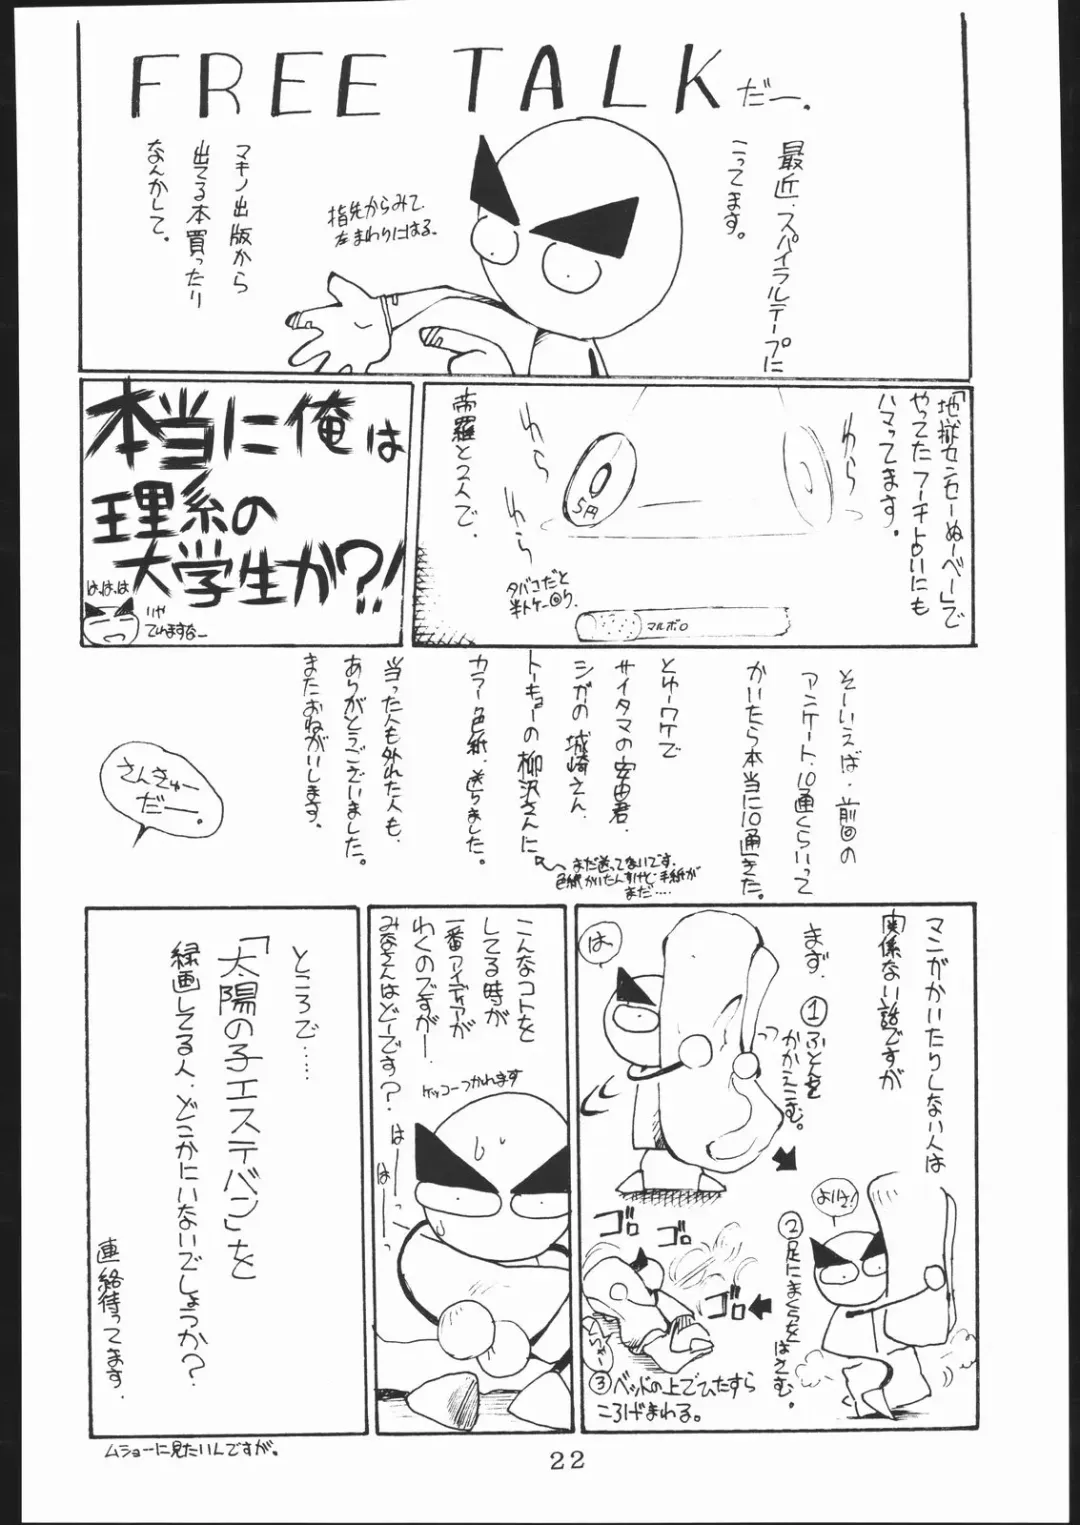 FREE TALKだー.
最近.スパイラルテープに
こってます。
指先からみて
左まわりにはる。
マキノ出版から
出てる本買ったり
なんかして。
「地獄センセーぬ〜べ〜」で
やってたフーチ占いにも
ハマってます。
ゆら
ゆら
ゆら
5円
タバコだと
マルボロ
帝羅と2人で.
本当に俺は
理系の
大学生か?!
は.は.は
いや
てれますなー
そーいえば.前回の
アンケート.10通くらいって
かいたら本当に10通きた。
とゆーワケで
サイタマの安由君.
シガの城崎さん.
トーキョーの柳沢さんに
カラー色紙.送りました。
まだ送ってないです.
色紙かいたんすけど手紙が
まだ….
当った人も外れた人も.
ありがとうございました。
またおねがいします.
さんきゅー
だー.
マンガかいたりしない人は
関係ない話ですが
まず.
①ふとんを
かかえこむ。
は
②足にまくらを
はさむ.
よいしょ!
ゴロ
ゴロ
ゴロ
③ベッドの上でひたすら
ころげまわる。
こんなコトを
してる時が
一番アイディアが
わくのですがー.
みなさんはどーです?.
ケッコーつかれます
はーっ
はーっ
ところで……
「太陽の子エステバン」を
録画してる人.どこかにいないでしょうか?
連絡待ってます.
ムショーに見たいんですが。
22